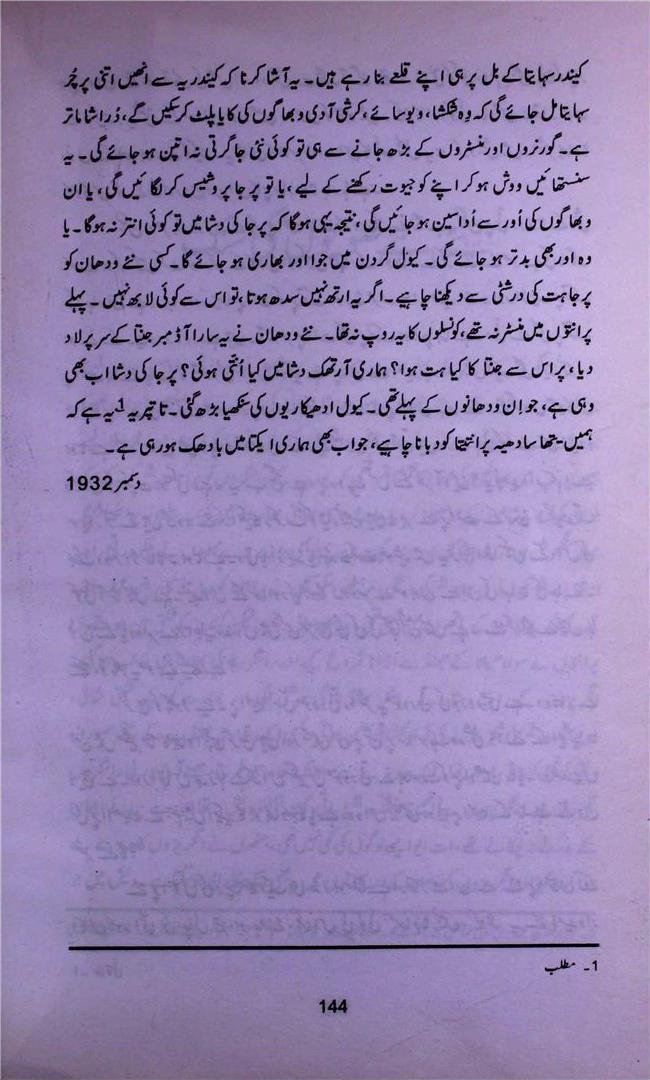 کیندر سہایتا کے بل پر ہی اپنے قلعے بنا رہے ہیں۔ یہ آشا کرنا کہ کیندریہ سے انھیں اتنی پرچُر
سہایتا مل جائے گی کہ وہ شکشا، ویوسائے، کرشی آدی وبھاگوں کی کایا پلٹ کر سکیں گے، دُراشا ماتر
ہے۔ گورنروں اور منسٹروں کے بڑھ جانے سے ہی تو کوئی نئی جاگرتی نہ اتپن ہو جائے گی۔ یہ
سنستھائیں ووش ہو کر اپنے کو جیوت رکھنے کے لیے، یا تو پرجا پر وشیس کر لگائیں گی، یا ان
وبھاگوں کی اُور سے اُداسین ہو جائیں گی، نتیجہ یہی ہوگا کہ پرجا کی دشا میں تو کوئی انتر نہ ہوگا۔ یا
وہ اور بھی بدتر ہو جائے گی۔ کیول گردن میں جوا اور بھاری ہو جائے گا۔ کسی نئے ودھان کو
پرجا ہت کی درشٹی سے دیکھنا چاہیے۔ اگر یہ ارتھ نہیں سدھ ہوتا، تو اس سے کوئی لابھ نہیں۔ پہلے
پرانتوں میں منسٹر نہ تھے، کونسلوں کا یہ روپ نہ تھا۔ نئے ودھان نے یہ سارا آڈمبر جنتا کے سر پر لاد
دیا، پر اس سے جنتا کا کیا ہت ہوا؟ ہماری آرتھک دشا میں کیا اُنتی ہوئی؟ پرجا کی دشا اب بھی
وہی ہے، جو اِن ودھانوں کے پہلے تھی۔ کیول ادھیکاریوں کی سنکھیا بڑھ گئی۔ تاتپریہ1 یہ ہے کہ
ہمیں یتھا سادھیہ پرانتیتا کو دبانا چاہیے، جو اب بھی ہماری ایکتا میں بادھک ہو رہی ہے۔
دسمبر 1932
1۔ مطلب
144